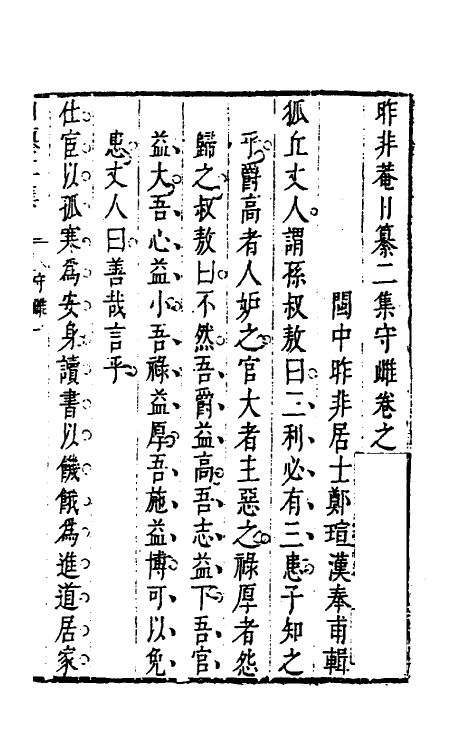 昨非菴日纂二集守雌卷之
閩中昨非居士鄭瑄漢奉甫輯
狐丘丈人謂孫叔敖曰三利必有三患子知之
乎爵高者人妒之官大者主惡之祿厚者怨
歸之叔敖曰不然吾爵益高吾志益下吾官
益大吾心益小吾祿益厚吾施益博可以免
患丈人曰善哉言乎
仕宦以孤寒為安身讀書以饑餓為進道居家
守雌一